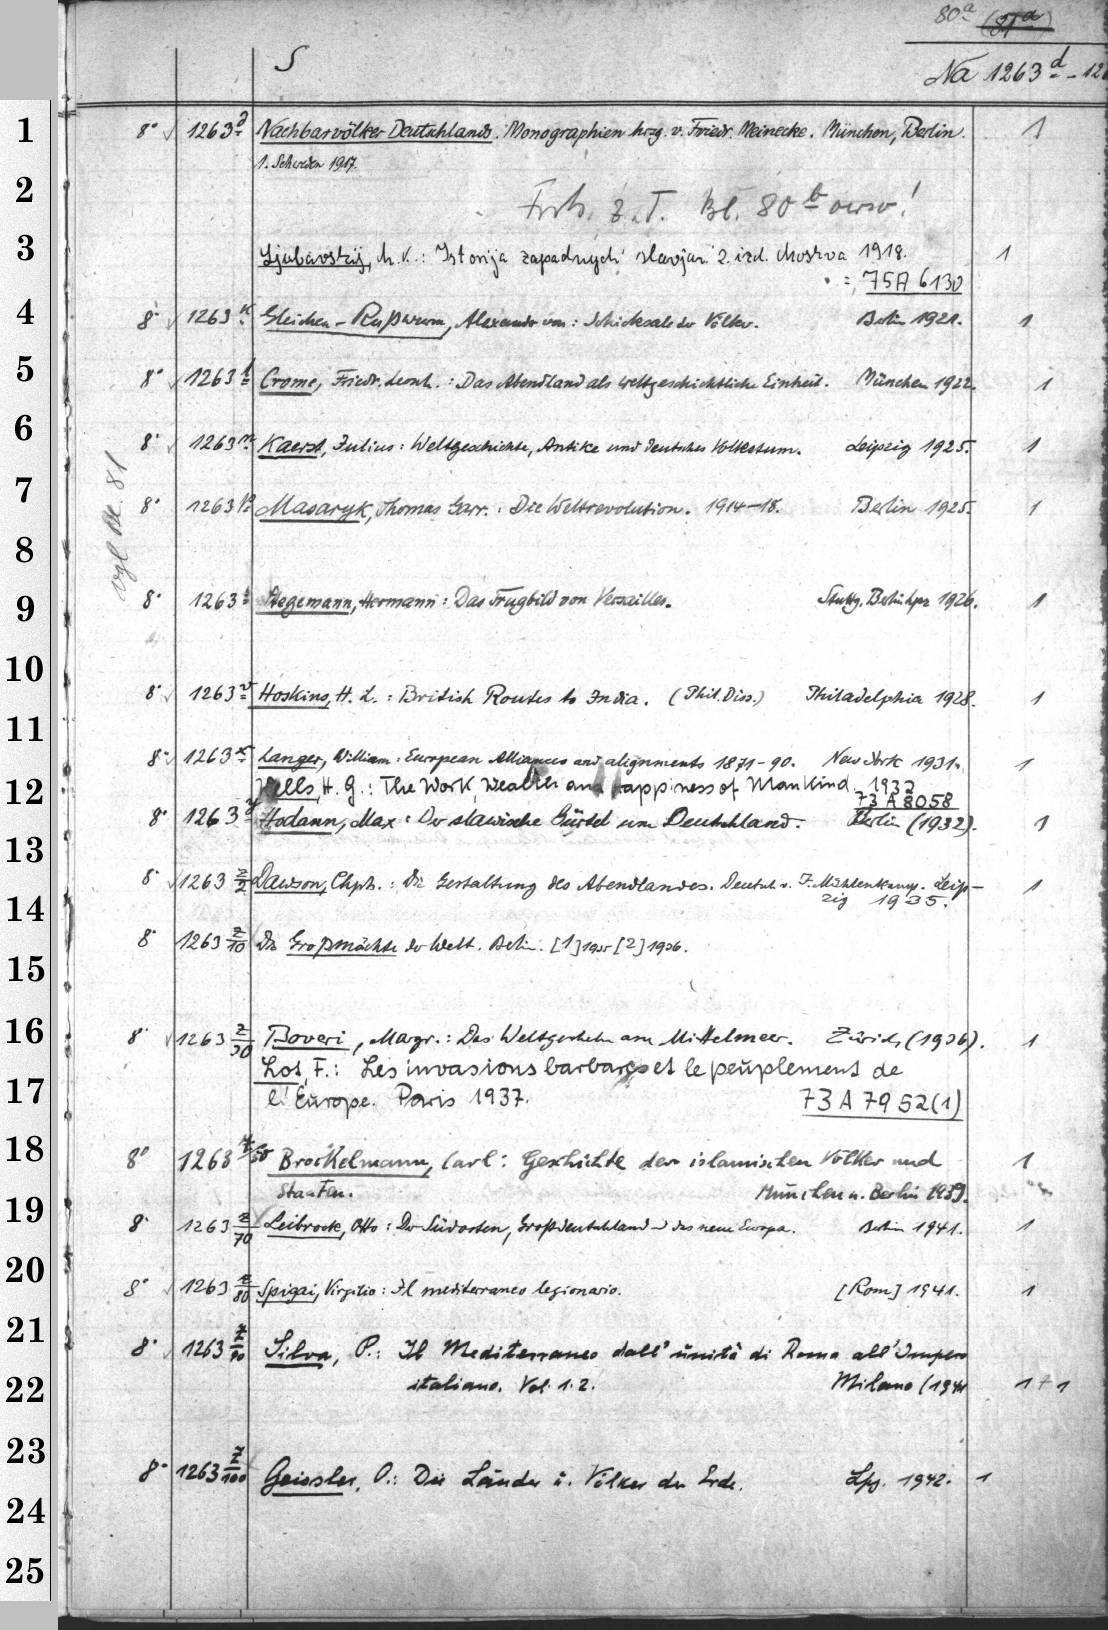 80a (81a)
S
Na 1263d - 126
1
8° 1263d Nachbarvölker Deutschlands. Monographien hrsg. v. Friedr. Meinecke. München, Berlin 1
1. Schweden 1917.
2
Forts. z. T. Bl. 80b verso!
3
Ljubavskij, M. K.: Istorija zapadnych slavjan 2. izd. Moskva 1918. 1
= 75 A 6130
4
8° 1263k Gleichen-Rußwurm, Alexander von: Schicksale der Völker. Berlin 1921. 1
5
8° 1263l Crome, Friedr. Leonh.: Das Abendland als weltgeschichtliche Einheit. München 1922. 1
6
8° 1263m Kaerst, Julius: Weltgeschichte, Antike und deutsches Volkstum. Leipzig 1925. 1
vgl. Bl. 81
7
8° 1263p Masaryk, Thomas Garr.: Die Weltrevolution. 1914-18. Berlin 1925. 1
8
9
8° 1263 Stegemann, Hermann: Das Trugbild von Versailles. Stuttg. Berlin Lpz 1926. 1
10
8° 1263v Hoskins, H. L.: British Routes to India. (Phil. Diss.) Philadelphia 1928. 1
11
8° 1263x Langer, William: European Alliances and alignments 1871-90. New York 1931. 1
12
Wells, H. G.: The Work, Wealth and Happiness of Mankind. 1932
73 A 8058
8° 1263y Hodann, Max: Der slawische Gürtel um Deutschland. Berlin (1932). 1
13
8° 1263 z/2 Dawson, Chph.: Die Gestaltung des Abendlandes. Deutsch v. J. Mühlenkamp. Leip- 1
14
zig 1935.
8° 1263 z/10 Die Großmächte der Welt. Berlin. [1] 1935 [2] 1936.
15
16
8° 1263 z/30 Boveri, Margr.: Das Weltgeschehen am Mittelmeer. Zürich (1936). 1
Lot, F.: Les invasions barbares et le peuplement de
17
l'Europe. Paris 1937. 73 A 7952(1)
18
8° 1263 z/50 Brockelmann, Carl: Geschichte der islamischen Völker und 1
Staaten. München u. Berlin 1939.
19
8° 1263 z/70 Leibrock, Otto: Der Südosten, Großdeutschland u. das neue Europa. Berlin 1941. 1
20
8° 1263 z/80 Spigai, Virgilio: Il mediterraneo legionario. [Rom] 1941. 1
21
8° 1263 z/90 Silva, P.: Il Mediterraneo dall' unità di Roma all' Impero
22
italiano. Vol. 1.2. Milano (1941 1 + 1
23
8° 1263 z/100 Geissler, O.: Die Länder u. Völker der Erde. Lpz. 1942. 1
24
25